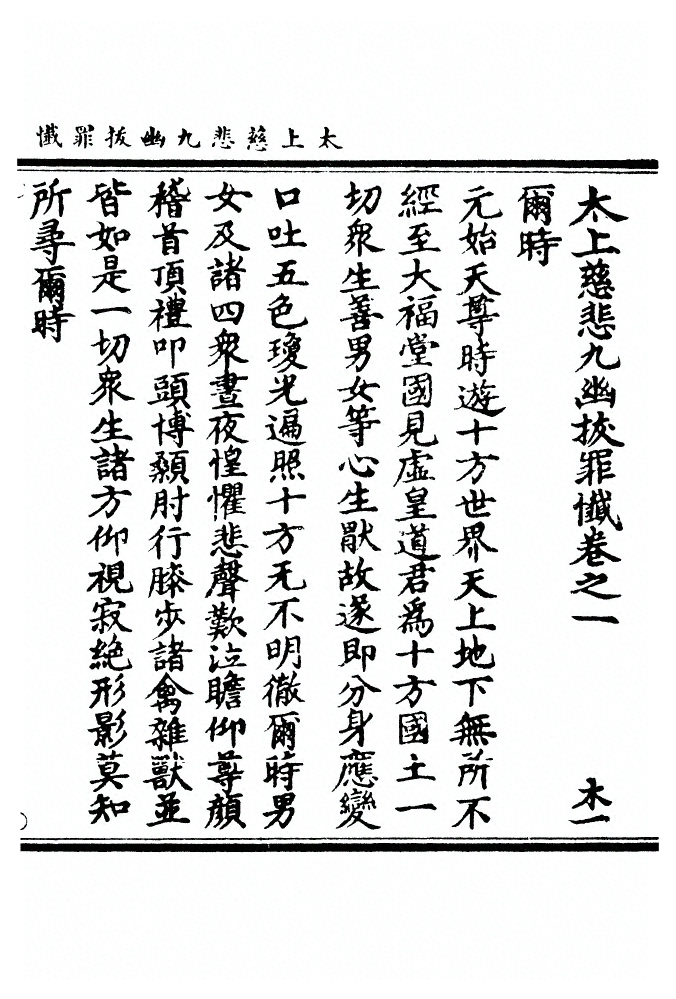 太上慈悲九幽拔罪懺
太上慈悲九幽拔罪懺卷之一 木一
爾時
元始天尊時遊十方世界天上地下無所不
經至大福堂國見虛皇道君爲十方國土一
切衆生善男女等心生厭故遂即分身應變
口吐五色瓊光遍照十方无不明徹爾時男
女及諸四衆晝夜惶懼悲聲歎泣瞻仰尊顏
稽首頂禮叩頭博顙肘行膝步諸禽雜獸並
皆如是一切衆生諸方仰視寂絶形影莫知
所尋爾時